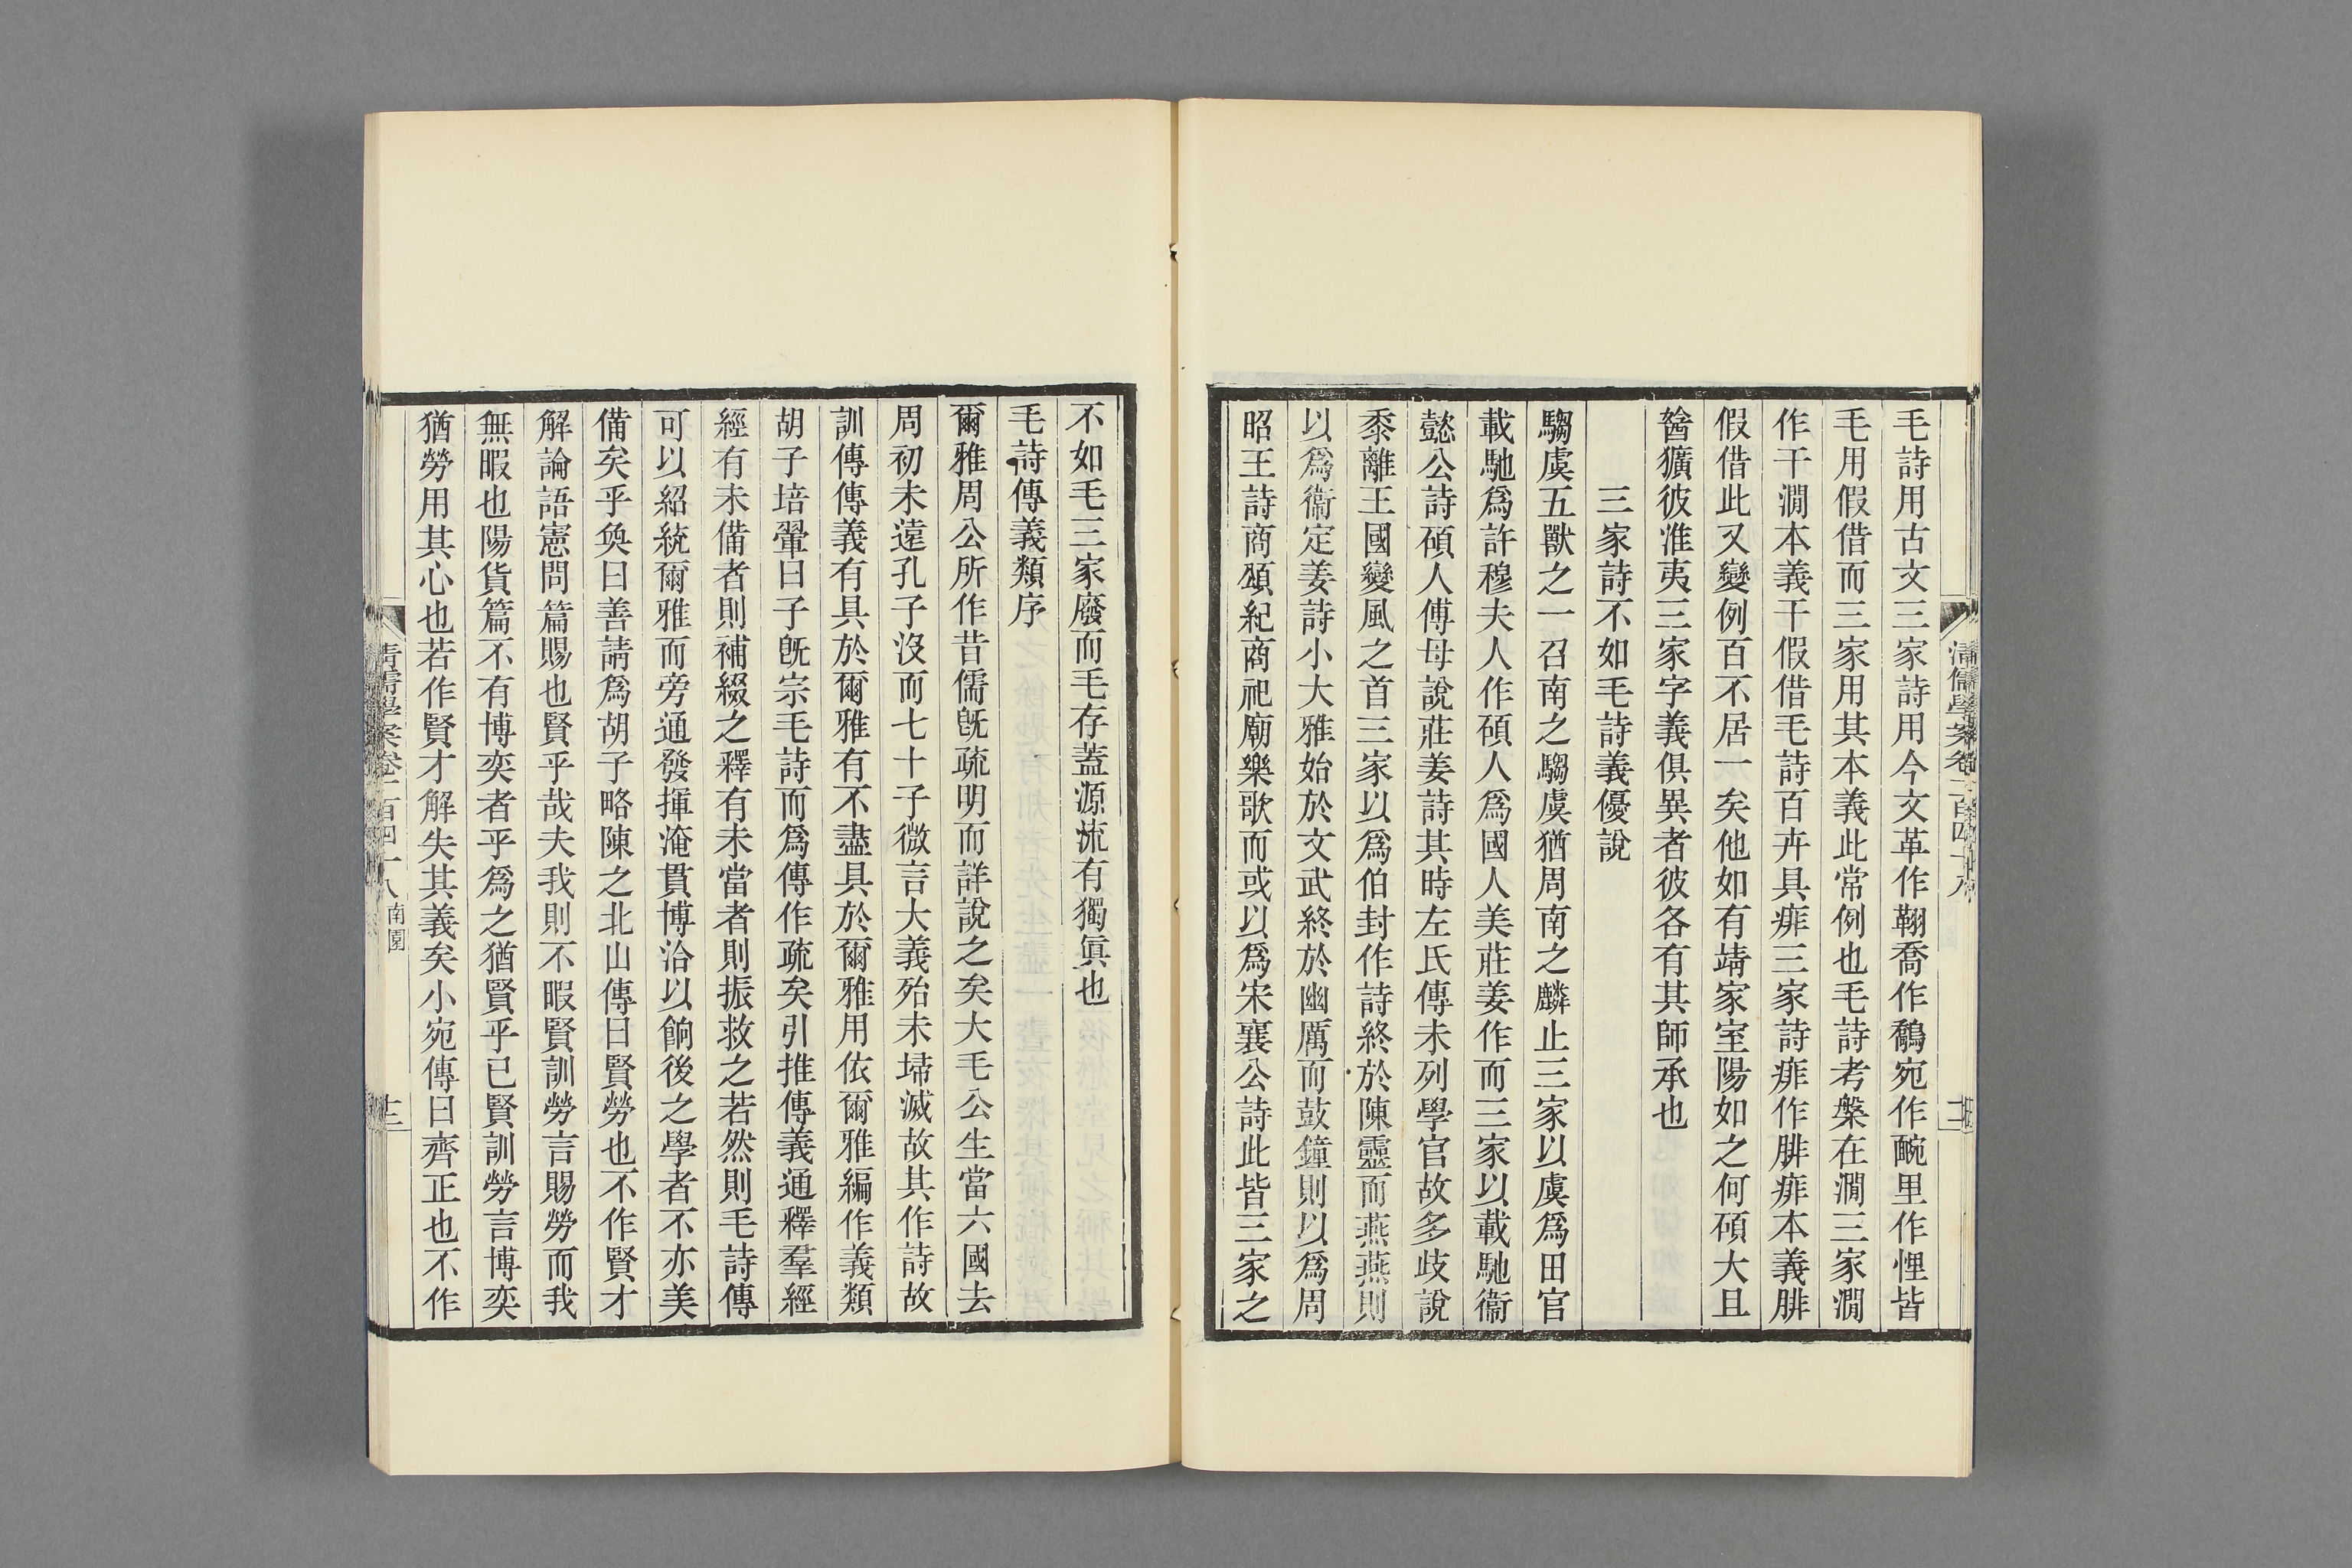 毛詩用古文三家詩用今文革作鞹喬作鷮宛作畹里作悝皆
毛用假借而三家用其本義此常例也毛詩考槃在澗三家澗
作干澗本義干假借毛詩百卉具痱三家詩痱作腓痱本義腓
假借此又變例百不居一矣他如有靖家室陽如之何碩大且
䯤獷彼淮夷三家字義俱異者彼各有其師承也
三家詩不如毛詩義優說
騶虞五獸之一召南之騶虞猶周南之麟止三家以虞爲田官
載馳爲許穆夫人作碩人爲國人美莊姜作而三家以載馳衞
懿公詩碩人傅母說莊姜詩其時左氏傳未列學官故多歧說
黍離王國變風之首三家以爲伯封作詩終於陳靈而燕燕則
以爲衞定姜詩小大雅始於文武終於幽厲而鼓鐘則以爲周
昭王詩商頌紀商祀廟樂歌而或以爲宋襄公詩此皆三家之
清儒學案卷一百四十八
不如毛三家廢而毛存蓋源流有獨眞也
毛詩傳義類序
爾雅周公所作昔儒旣疏明而詳說之矣大毛公生當六國去
周初未遠孔子沒而七十子微言大義殆未埽滅故其作詩故
訓傳傳義有具於爾雅有不盡具於爾雅用依爾雅編作義類
胡子培翬曰子旣宗毛詩而爲傳作疏矣引推傳義通釋羣經
經有未備者則補綴之釋有未當者則振救之若然則毛詩傳
可以紹統爾雅而旁通發揮淹貫博洽以餉後之學者不亦美
備矣乎奐曰善請爲胡子略陳之北山傳曰賢勞也不作賢才
解論語憲問篇賜也賢乎哉夫我則不暇賢訓勞言賜勞而我
無暇也陽貨篇不有博奕者乎爲之猶賢乎已賢訓勞言博奕
猶勞用其心也若作賢才解失其義矣小宛傳曰齊正也不作
清儒學案卷一百四十八
南園
十三